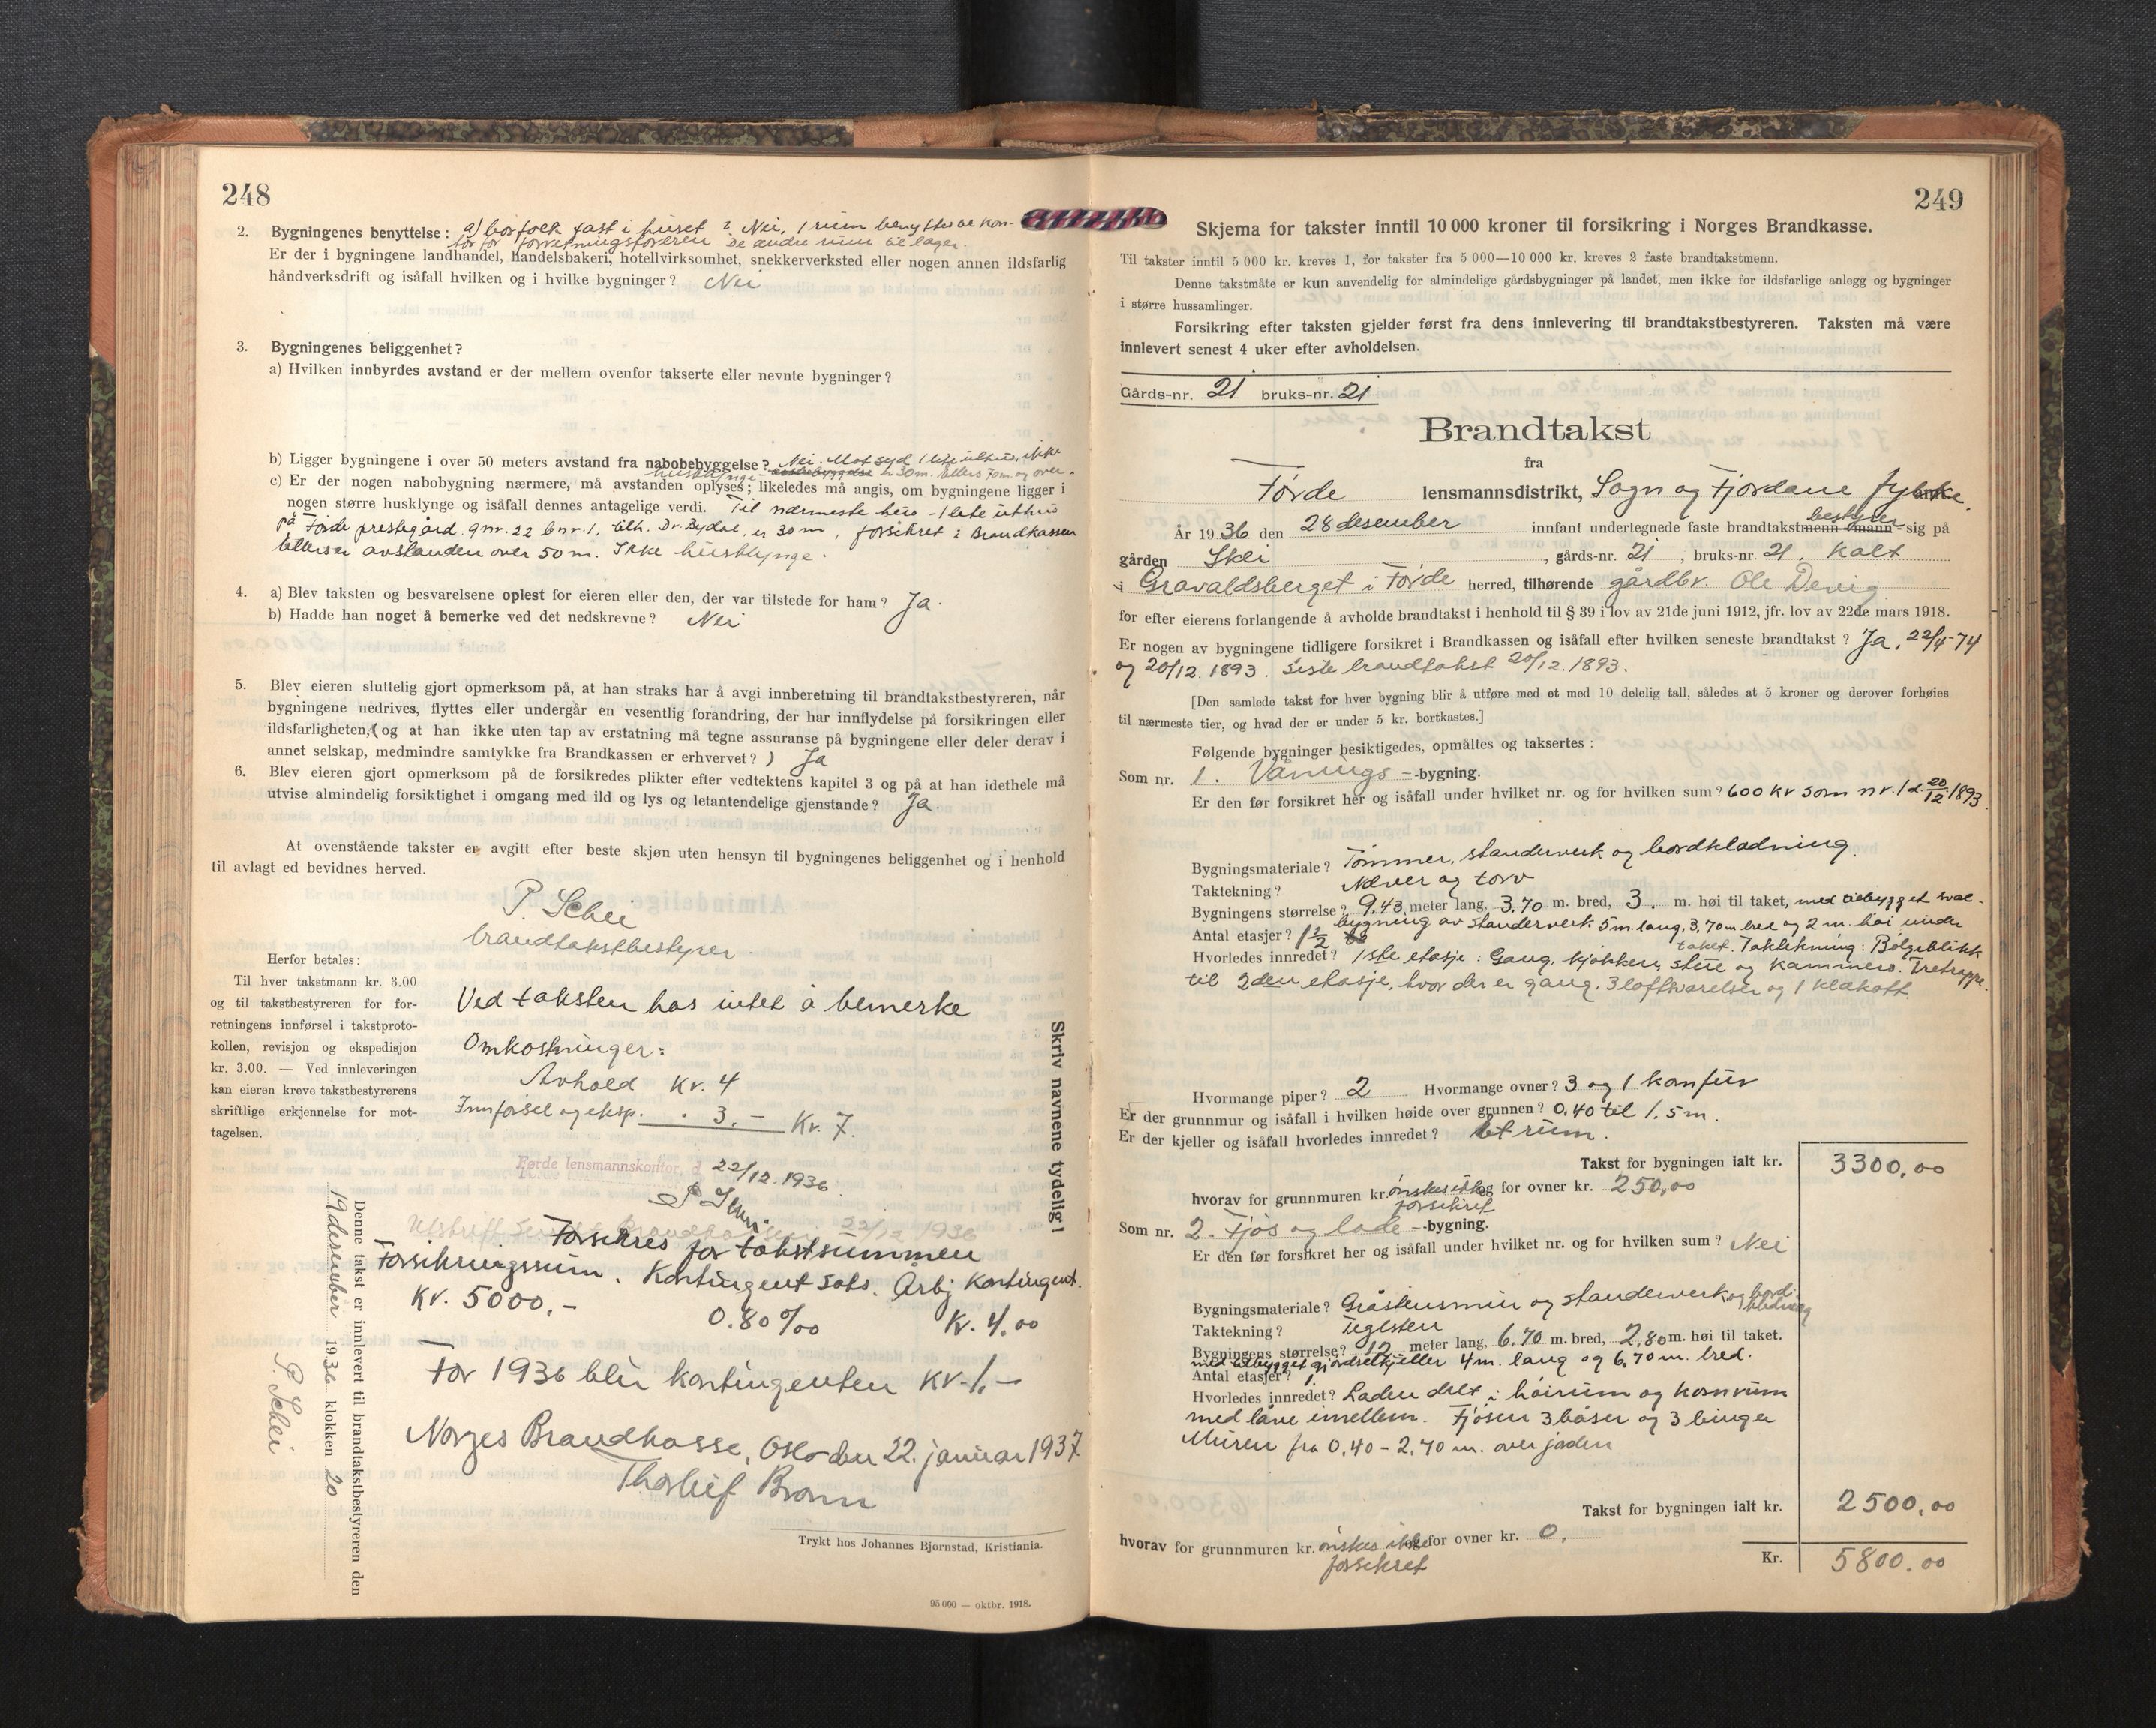 248
2. Bygningenes benyttelse: a) bor folk fast i huset? Nei, 1 rum benyttes av kon-
tor for forretningsføreren De andre rum til lager.
Er der i bygningene landhandel, handelsbakeri, hotellvirksomhet, snekkerverksted eller nogen annen ildsfarlig
håndverksdrift og isåfall hvilken og i hvilke bygninger? Nei
3. Bygningenes beliggenhet?
a) Hvilken innbyrdes avstand er der mellem ovenfor takserte eller nevnte bygninger?
b) Ligger bygningene i over 50 meters avstand fra nabobebyggelse? Nei. Mot syd 1 lite uthus, ikke
husklynge er 30m. Ellers 70m og over.
c) Er der nogen nabobygning nærmere, må avstanden oplyses; likeledes må angis, om bygningene ligger i
nogen større husklynge og isåfall dennes antagelige verdi. Til nærmeste hus - 1 lite uthus
på Førde prestegård gnr. 22 bnr. 1, tilh. Dr. Bydal, er 30 m, forsikret i Brandkassen
Ellers er avstanden over 50 m. Ikke husklynge.
4. a) Blev taksten og besvarelsene oplest for eieren eller den, der var tilstede for ham? Ja.
b) Hadde han noget å bemerke ved det nedskrevne? Nei
5. Blev eieren sluttelig gjort opmerksom på, at han straks har å avgi innberetning til brandtakstbestyreren, når
bygningene nedrives, flyttes eller undergår en vesentlig forandring, der har innflydelse på forsikringen eller
ildsfarligheten, (og at han ikke uten tap av erstatning må tegne assuranse på bygningene eller deler derav i
annet selskap, medmindre samtykke fra Brandkassen er erhvervet?) Ja
6. Blev eieren gjort opmerksom på de forsikredes plikter efter vedtektens kapitel 3 og på at han idethele må
utvise almindelig forsiktighet i omgang med ild og lys og letantendelige gjenstande? Ja.
At ovenstående takster er avgitt efter beste skjøn uten hensyn til bygningenes beliggenhet og i henhold
til avlagt ed bevidnes herved.
P. Schei
brandtakstbestyrer.
Herfor betales:
Til hver takstmann kr. 3.00
og til takstbestyreren for for-
retningens innførsel i takstproto-
kollen, revisjon og ekspedisjon
kr. 3.00. — Ved innleveringen
kan eieren kreve takstbestyrerens
skriftlige erkjennelse for mot-
tagelsen.
Ved taksten has intet å bemerke
Omkostninger:
Avhold Kr. 4
Innførsel og eksp. " 3.- Kr. 7.
Førde lensmannskontor, d. 22/12. 1936.
Utskrift sendt Brandkassen 22/12 1936
Forsikres for takstsummen
Forsikringssum. Kontingentsats. Årlig kontingent.
Kr. 5000,- 0.80 ‰ Kr. 4.00
For 1936 blir kontingenten Kr. 1.-
Norges Brandkasse, Oslo den 22. januar 1937
Thorleif Bronn
Skriv navnene tydelig!
Denne takst er innlevert til brandtakstbestyreren den
19 desember 1936 klokken 20
P. Schei
Trykt hos Johannes Bjørnstad, Kristiania.
95 000 — oktbr. 1918.
249
Skjema for takster inntil 10 000 kroner til forsikring i Norges Brandkasse.
Til takster inntil 5 000 kr. kreves 1, for takster fra 5 000—10 000 kr. kreves 2 faste brandtakstmenn.
Denne takstmåte er kun anvendelig for almindelige gårdsbygninger på landet, men ikke for ildsfarlige anlegg og bygninger
i større hussamlinger.
Forsikring efter taksten gjelder først fra dens innlevering til brandtakstbestyreren. Taksten må være
innlevert senest 4 uker efter avholdelsen.
Gårds-nr. 21 bruks-nr. 21
Brandtakst
fra
Førde lensmannsdistrikt, Sogn og Fjordane fylke.
År 1936 den 28 desember innfant undertegnede faste brandtakstmenn -mann bestyrer sig på
gården Skei, gårds-nr. 21, bruks-nr. 21. Kalt
i Gravaldsberget i Førde herred, tilhørende gårdbr. Ole Devig
for efter eierens forlangende å avholde brandtakst i henhold til § 39 i lov av 21de juni 1912, jfr. lov av 22de mars 1918.
Er nogen av bygningene tidligere forsikret i Brandkassen og isåfall efter hvilken seneste brandtakst? Ja, 22/4-74
og 20/12. 1893. Siste brandtakst 20/12. 1893.
[Den samlede takst for hver bygning blir å utføre med et med 10 delelig tall, således at 5 kroner og derover forhøies
til nærmeste tier, og hvad der er under 5 kr. bortkastes.]
Følgende bygninger besiktigedes, opmåltes og taksertes:
Som nr. 1. Vånings-bygning.
Er den før forsikret her og isåfall under hvilket nr. og for hvilken sum? 600 kr som nr. 1 d. 20/12 1893.
Bygningsmateriale? Tømmer, standerverk og bordkledning.
Taktekning? Never og torv
Bygningens størrelse? 9,43 meter lang, 3,70 m. bred, 3. m. høi til taket, med tilbygget sval-
bygning av standerverk 5 m. lang, 3,70 m bred og 2 m. høi under
Antal etasjer? 1 1/2 taket. Taktekning: Bølgeblikk
Hvorledes innredet? 1ste etasje: Gang, kjøkken, stue og kammers. Tretrappe
til 2den etasje, hvor der er gang, 3 loftsværelser og 1 klekott.
Hvormange piper? 2 Hvormange ovner? 3 og 1 komfur
Er der grunnmur og isåfall i hvilken høide over grunnen? 0,40 til 1.5 m.
Er der kjeller og isåfall hvorledes innredet? et rum.
Takst for bygningen ialt kr. 3300,00
hvorav for grunnmuren kr. ønskes ikke og for ovner kr. 250,00
forsikret
Som nr. 2. Fjøs og lade-bygning.
Er den før forsikret her og isåfall under hvilket nr. og for hvilken sum? Nei
Bygningsmateriale? Gråstensmur og standerverk og bord-
kledning
Taktekning? Teglsten
Bygningens størrelse? 12 meter lang, 6,70 m. bred, 2,80 m. høi til taket.
med tilbygget gjødselkjeller 4 m. lang og 6,70 m. bred.
Antal etasjer? 1.
Hvorledes innredet? Laden delt i høirum og kornrum
med låve imellem. Fjøsen 3 båser og 3 binger
Muren fra 0,40 - 2,70 m. over jorden
Takst for bygningen ialt kr. 2500,00
hvorav for grunnmuren kr. ønskes ikke og for ovner kr. 0.
forsikret
Kr. 5800.00